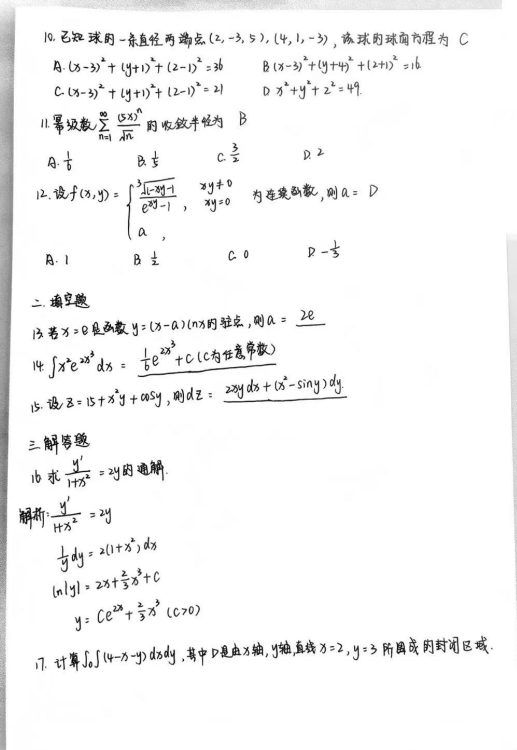 10. 已知球的一条直径两端点(2,-3,5),(4,1,-3),该球的球面方程为 C
A.(x-3)²+(y+1)²+(z-1)²=36 B(x-3)²+(y+4)²+(z+1)²=16
C.(x-3)²+(y+1)²+(z-1)²=21 D x²+y²+z²=49.
11.幂级数 ∑_{n=1}^{∞} (5x)ⁿ/√n 的收敛半径为 B
A. 1/6 B. 1/5 C. 3/2 D. 2
12.设f(x,y)= { (³√(1-xy)-1)/(e^{xy}-1), xy≠0 xy=0 为连续函数,则a= D
a ,
A. 1 B 1/2 C. 0 D. -1/3
二.填空题
13.若x=e是函数y=(x-a)lnx的驻点,则a= 2e
14. ∫x²e^{2x³}dx = 1/6 e^{2x³}+C(C为任意常数)
15.设z=15+x²y+cosy,则dz= 2xydx+(x²-siny)dy.
三.解答题
16.求 y'/(1+x²) =2y的通解.
解析: y'/(1+x²) =2y
1/y dy=2(1+x²)dx
ln|y|=2x+2/3x³+C
y=Ce^{2x+2/3x³} (C>0)
17.计算∫_D∫(4-x-y)dxdy,其中D是由x轴,y轴,直线x=2,y=3所围成的封闭区域.